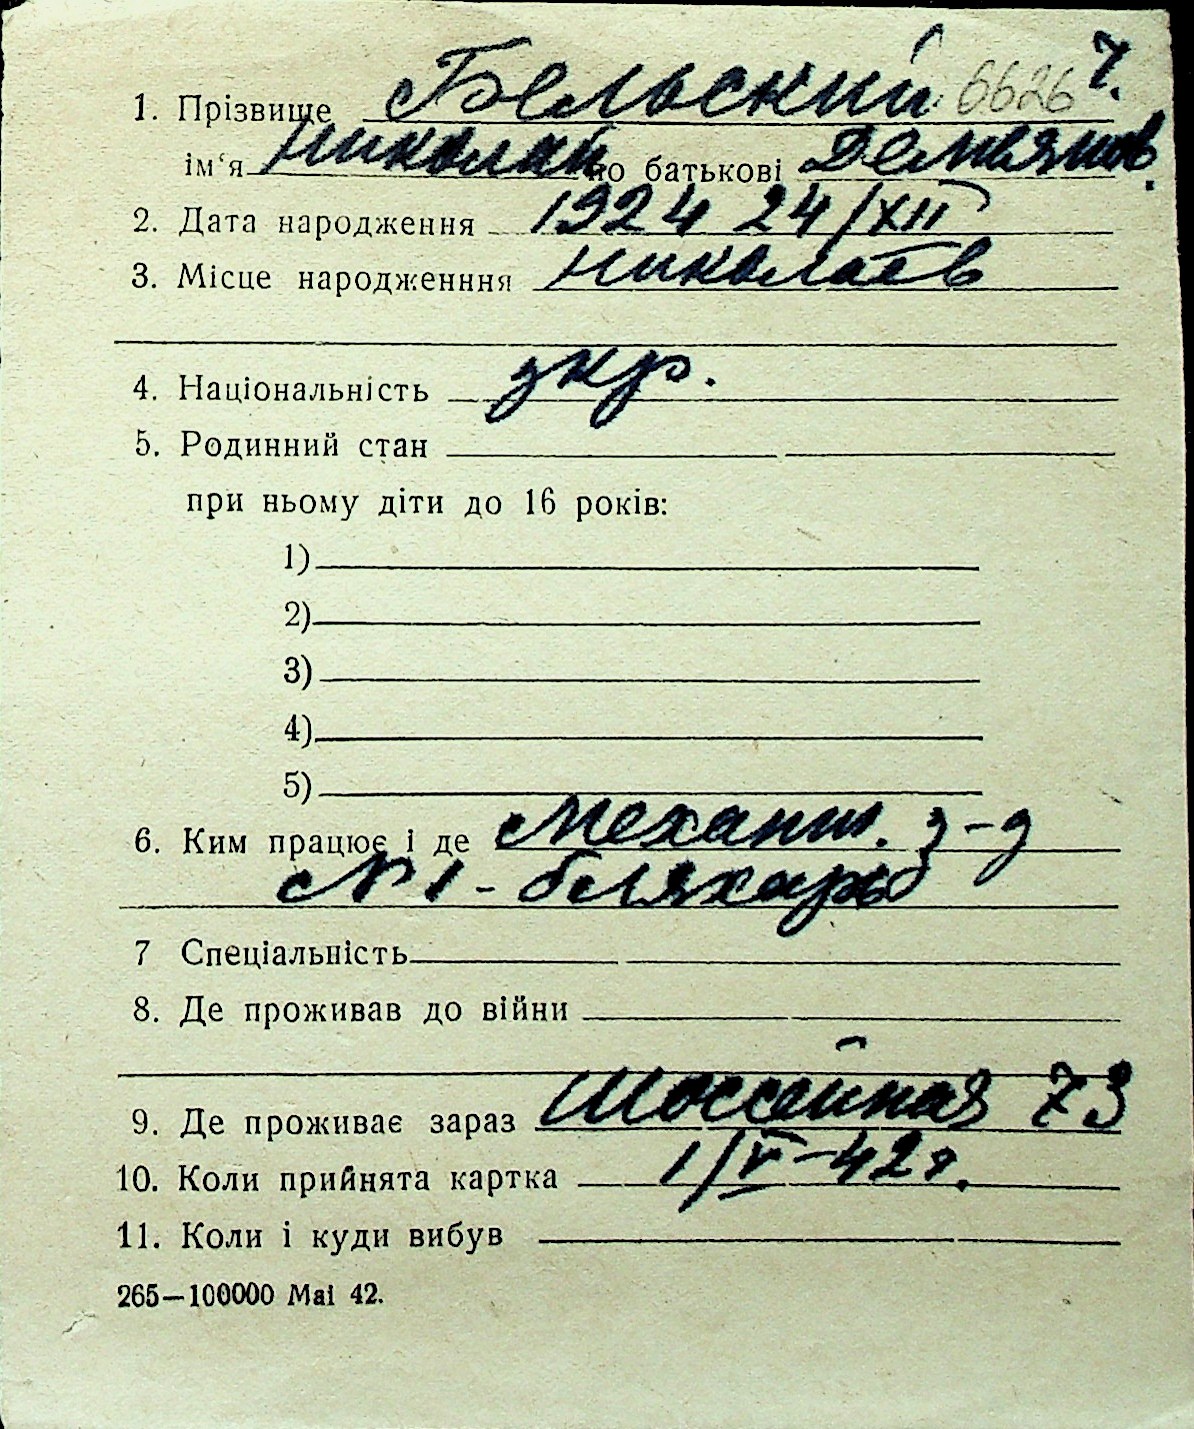 7.
1. Прізвище Бельский 6626
ім‘я Николай по батькові Демьянов.
2. Дата народження 1924 24/XII
3. Місце народженння Николаев
4. Національність укр.
5. Родинний стан
при ньому діти до 16 років:
1)
2)
3)
4)
5)
6. Ким працює і де Механич. з-д
№ 1 - бляхарь
7 Спеціальність
8. Де проживав до війни
9. Де проживає зараз Шоссейная 73
10. Коли прийнята картка 1/V-42 г.
11. Коли і куди вибув
265—100000 Mai 42.